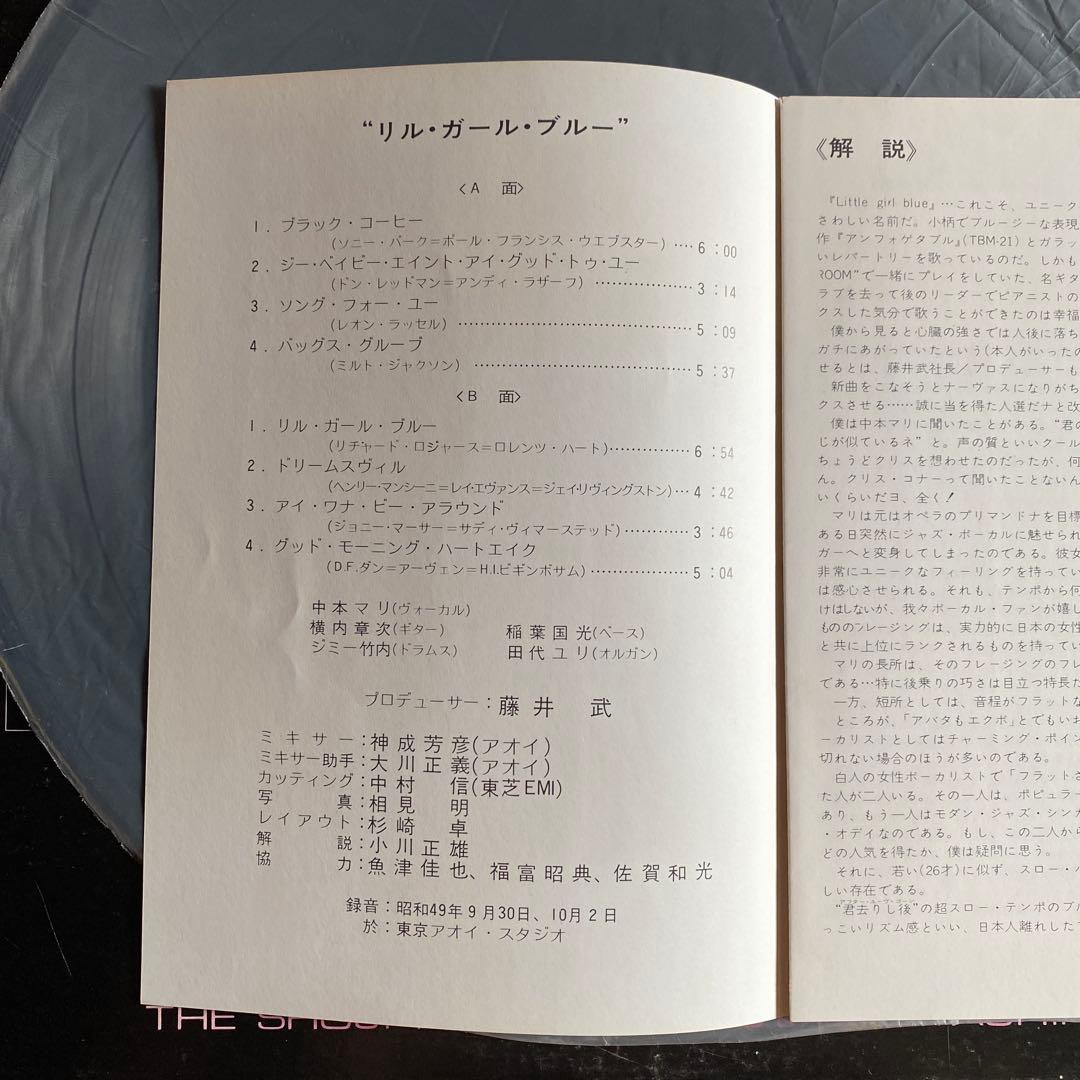 “リル・ガール・ブルー”
〈A 面〉
1. ブラック・コーヒー
(ソニー・バーク=ポール・フランシス・ウエブスター)‥‥6:00
2. ジー・ベイビー・エイント・アイ・グッド・トゥ・ユー
(ドン・レッドマン=アンディ・ラザーフ)‥‥‥‥3:14
3. ソング・フォー・ユー
(レオン・ラッセル)‥‥‥‥5:09
4. バッグス・グルーブ
(ミルト・ジャクソン)‥‥‥‥5:37
〈B 面〉
1. リル・ガール・ブルー
(リチャード・ロジャース=ロレンツ・ハート)‥‥‥‥6:54
2. ドリームスヴィル
(ヘンリー・マンシーニ=レイ・エヴァンス=ジェイ・リヴィングストン)‥4:42
3. アイ・ワナ・ビー・アラウンド
(ジョニー・マーサー=サディ・ヴィマーステッド)‥‥‥‥3:46
4. グッド・モーニング・ハートエイク
(D.F.ダン=アーヴェン=H.I.ビギンボサム)‥‥‥‥5:04
中本マリ(ヴォーカル)
横内章次(ギター) 稲葉国光(ベース)
ジミー竹内(ドラムス) 田代ユリ(オルガン)
プロデューサー:藤井 武
ミキサー:神成芳彦(アオイ)
ミキサー助手:大川正義(アオイ)
カッティング:中村 信(東芝EMI)
写真:相見 明
レイアウト:杉崎 卓
解説:小川正雄
協力:魚津佳也、福富昭典、佐賀和光
録音:昭和49年9月30日、10月2日
於:東京アオイ・スタジオ
《解 説》
『Little girl blue』…これこそ、ユニーク
さわしい名前だ。小柄でブルージーな表現
作『アンフォゲタブル』(TBM-21)とガラッ
いレパートリーを歌っているのだ。しかも
ROOM”で一緒にプレイをしていた、名ギタ
ラブを去って後のリーダーでピアニストの
クスした気分で歌うことができたのは幸福
僕から見ると心臓の強さでは人後に落ち
ガチにあがっていたという(本人がいったの
せるとは、藤井武社長/プロデューサーも
新曲をこなそうとナーヴァスになりがち
クスさせる……誠に当を得た人選だナと改
僕は中本マリに聞いたことがある。“君の
じが似ているネ”と。声の質といいクール
ちょうどクリスを想わせたのだったが、何
ん。クリス・コナーって聞いたことないん
いくらいだヨ、全く!
マリは元はオペラのプリマンドナを目標
ある日突然にジャズ・ボーカルに魅せられ
ガーへと変身してしまったのである。彼女
非常にユニークなフィーリングを持ってい
は感心させられる。それも、テンポから何
けはしないが、我々ボーカル・ファンが嬉し
もののフレージングは、実力的に日本の女性
と共に上位にランクされるものを持ってい
マリの長所は、そのフレージングのフレ
である…特に後乗りの巧さは目立つ特長だ
一方、短所としては、音程がフラットな
ところが、「アバタもエクボ」とでもいお
ーカリストとしてはチャーミング・ポイン
切れない場合のほうが多いのである。
白人の女性ボーカリストで「フラットさ
た人が二人いる。その一人は、ポピュラー
あり、もう一人はモダン・ジャズ・シンガ
・オデイなのである。もし、この二人から
どの人気を得たか、僕は疑問に思う。
それに、若い(26才)に似ず、スロー・バ
しい存在である。
“君去りし後”の超スロー・テンポのブル
っこいリズム感といい、日本人離れした